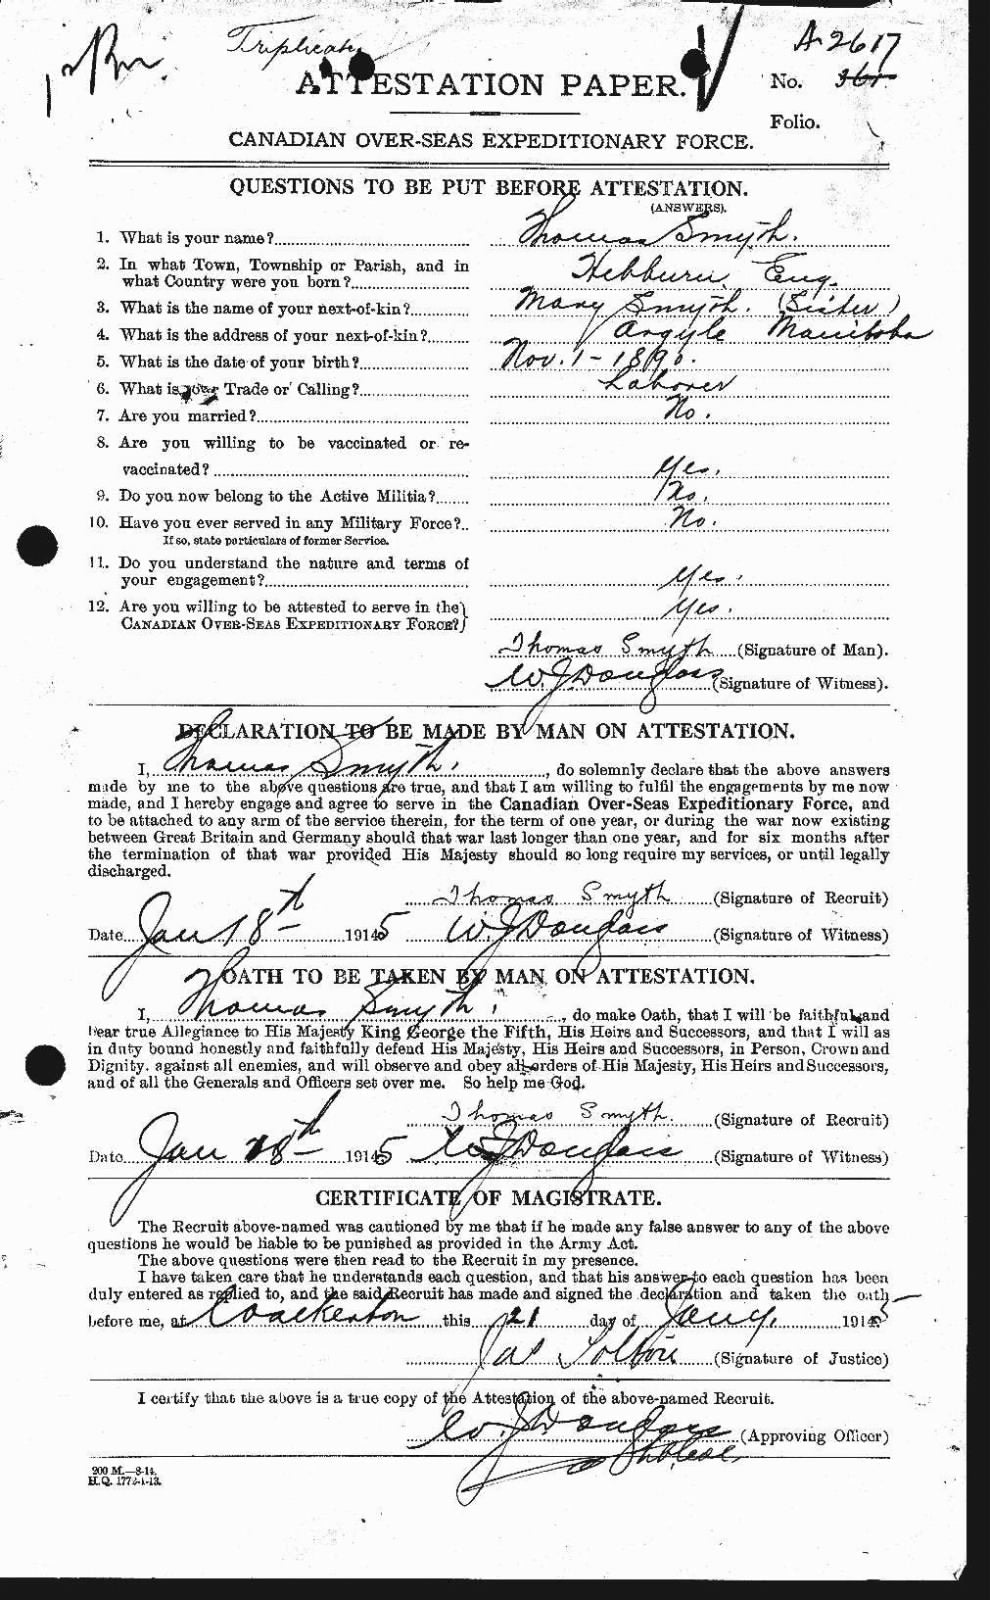 Triplicate
A2617
ATTESTATION PAPER.
No. 361
Folio.
CANADIAN OVER-SEAS EXPEDITIONARY FORCE.
QUESTIONS TO BE PUT BEFORE ATTESTATION.
(ANSWERS).
1. What is your name? Thomas Smyth.
2. In what Town, Township or Parish, and in
what Country were you born? Hebburn, Eng.
3. What is the name of your next-of-kin? Mary Smyth. (Sister)
4. What is the address of your next-of-kin? Argyle Manitoba
5. What is the date of your birth? Nov. 1 - 1890.
6. What is your Trade or Calling? Laborer
7. Are you married? No.
8. Are you willing to be vaccinated or re-
vaccinated? Yes.
9. Do you now belong to the Active Militia? No.
10. Have you ever served in any Military Force? No.
If so, state particulars of former Service.
11. Do you understand the nature and terms of
your engagement? Yes.
12. Are you willing to be attested to serve in the
CANADIAN OVER-SEAS EXPEDITIONARY FORCE? Yes.
Thomas Smyth (Signature of Man).
W. J. Douglass (Signature of Witness).
DECLARATION TO BE MADE BY MAN ON ATTESTATION.
I, Thomas Smyth, do solemnly declare that the above answers
made by me to the above questions are true, and that I am willing to fulfil the engagements by me now
made, and I hereby engage and agree to serve in the Canadian Over-Seas Expeditionary Force, and
to be attached to any arm of the service therein, for the term of one year, or during the war now existing
between Great Britain and Germany should that war last longer than one year, and for six months after
the termination of that war provided His Majesty should so long require my services, or until legally
discharged.
Thomas Smyth (Signature of Recruit)
Date Jan 18th 1915 W J Douglass (Signature of Witness)
OATH TO BE TAKEN BY MAN ON ATTESTATION.
I, Thomas Smyth, do make Oath, that I will be faithful and
bear true Allegiance to His Majesty King George the Fifth, His Heirs and Successors, and that I will as
in duty bound honestly and faithfully defend His Majesty, His Heirs and Successors, in Person, Crown and
Dignity, against all enemies, and will observe and obey all orders of His Majesty, His Heirs and Successors,
and of all the Generals and Officers set over me. So help me God.
Thomas Smyth. (Signature of Recruit)
Date Jan 18th 1915 W J Douglass (Signature of Witness)
CERTIFICATE OF MAGISTRATE.
The Recruit above-named was cautioned by me that if he made any false answer to any of the above
questions he would be liable to be punished as provided in the Army Act.
The above questions were then read to the Recruit in my presence.
I have taken care that he understands each question, and that his answer to each question has been
duly entered as replied to, and the said Recruit has made and signed the declaration and taken the oath
before me, at this 21 day of Jany. 1915
Jas Tolton (Signature of Justice)
I certify that the above is a true copy of the Attestation of the above-named Recruit.
W. J Douglass (Approving Officer)
200 M.—8-14.
H.Q. 1772-1-13.